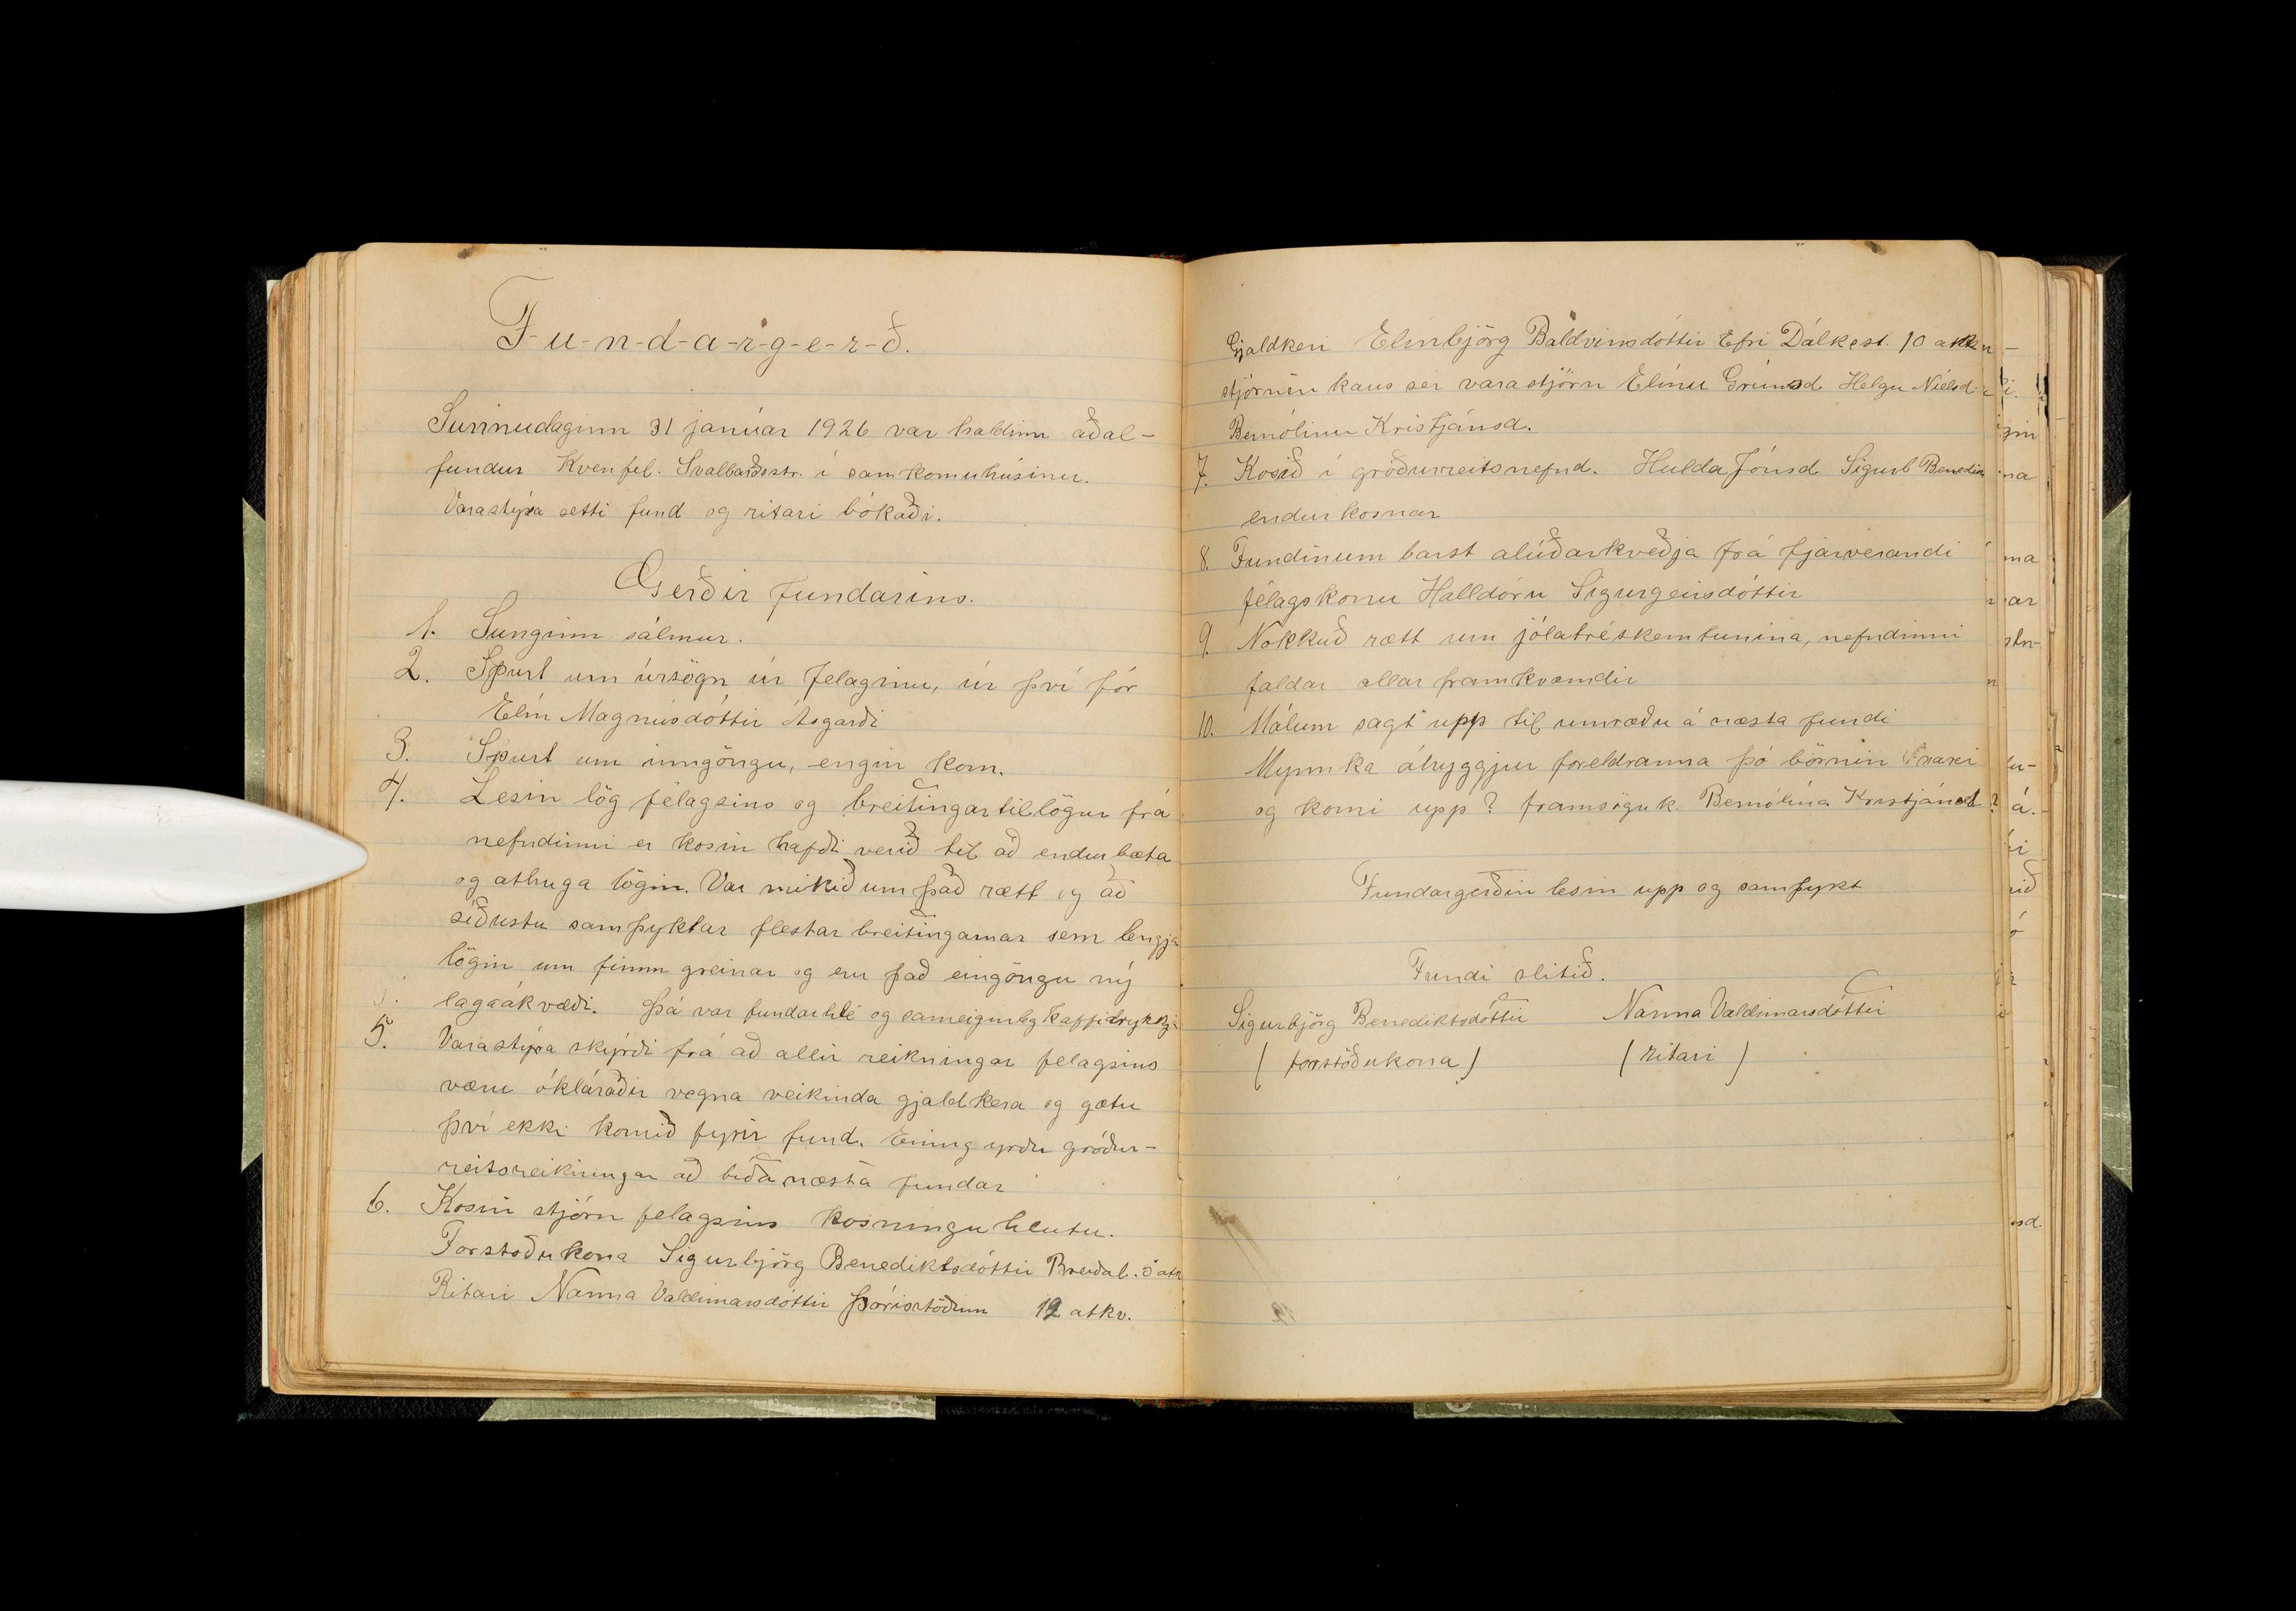 F-u-n-d-a-r-g-e-r-ð.
Sunnudaginn 31 janúar 1926 var haldinn aðal-
fundur Kvenfel. Svalbarðsstr. í samkomuhúsinu.
Varastýra setti fund og ritari bókaði.
Gerðir fundarins.
1. Sunginn sálmur.
2. Spurt um úrsögn úr felaginu, úr því fór
Elín Magnúsdóttir Ásgarði
3. Spurt um inngöngu, engin kom.
4. Lesin lög félagsins og breitingartillögur frá
nefndinni er kosin hafði verið til að endurbæta
og athuga lögin. Var mikið um það rætt og að
síðustu samþyktar flestar breitingarnar sem lengja
lögin um fimm greinar og eru það eingöngu ný
lagaákvæði. Þá var fundarhlé og sameiginleg kaffidrykkja
5. Varastýra skýrði frá að allir reikningar felagsins
væru ókláraðir vegna veikinda gjaldkera og gætu
því ekki komið fyrir fund. Einnig yrðu gróður-
reitsreikningar að bíða næsta fundar
6. Kosin stjórn felagsins kosningu hlutu.
Forstoðukona Sigurbjörg Benediktsdóttir Breiðab. 5 atk
Ritari Nanna Valdimarsdóttir Þórisstöðum 12 atkv.
Gjaldkeri Elinbjörg Baldvinsdóttir Efri Dálksst. 10 atkv
stjórnin kaus sér varastjórn Elínu Grímsd Helgu Níelsd
Bernólínu Kristjánsd.
7. Kosið í gróðurreitsnefnd. Hulda Jónsd Sigurb Benedik
endurkosnar
8. Fundinum barst alúðarkveðja frá fjarverandi
félagskonu Halldóru Sigurgeirsdóttir
9. Nokkuð rætt um jólatréskemtunina, nefndinni
faldar allar framkvæmdir
10. Málum sagt upp til umræðu á næsta fundi
Mynnka áhyggjur foreldranna þó börnin
og komi upp? framsöguk. Bernólína Kristjánsd
Fundargerðin lesin upp og samþykt
Fundi slitið.
Sigurbjörg Benediktsdóttir Nanna Valdimarsdóttir
( forstöðukona ) ( ritari )